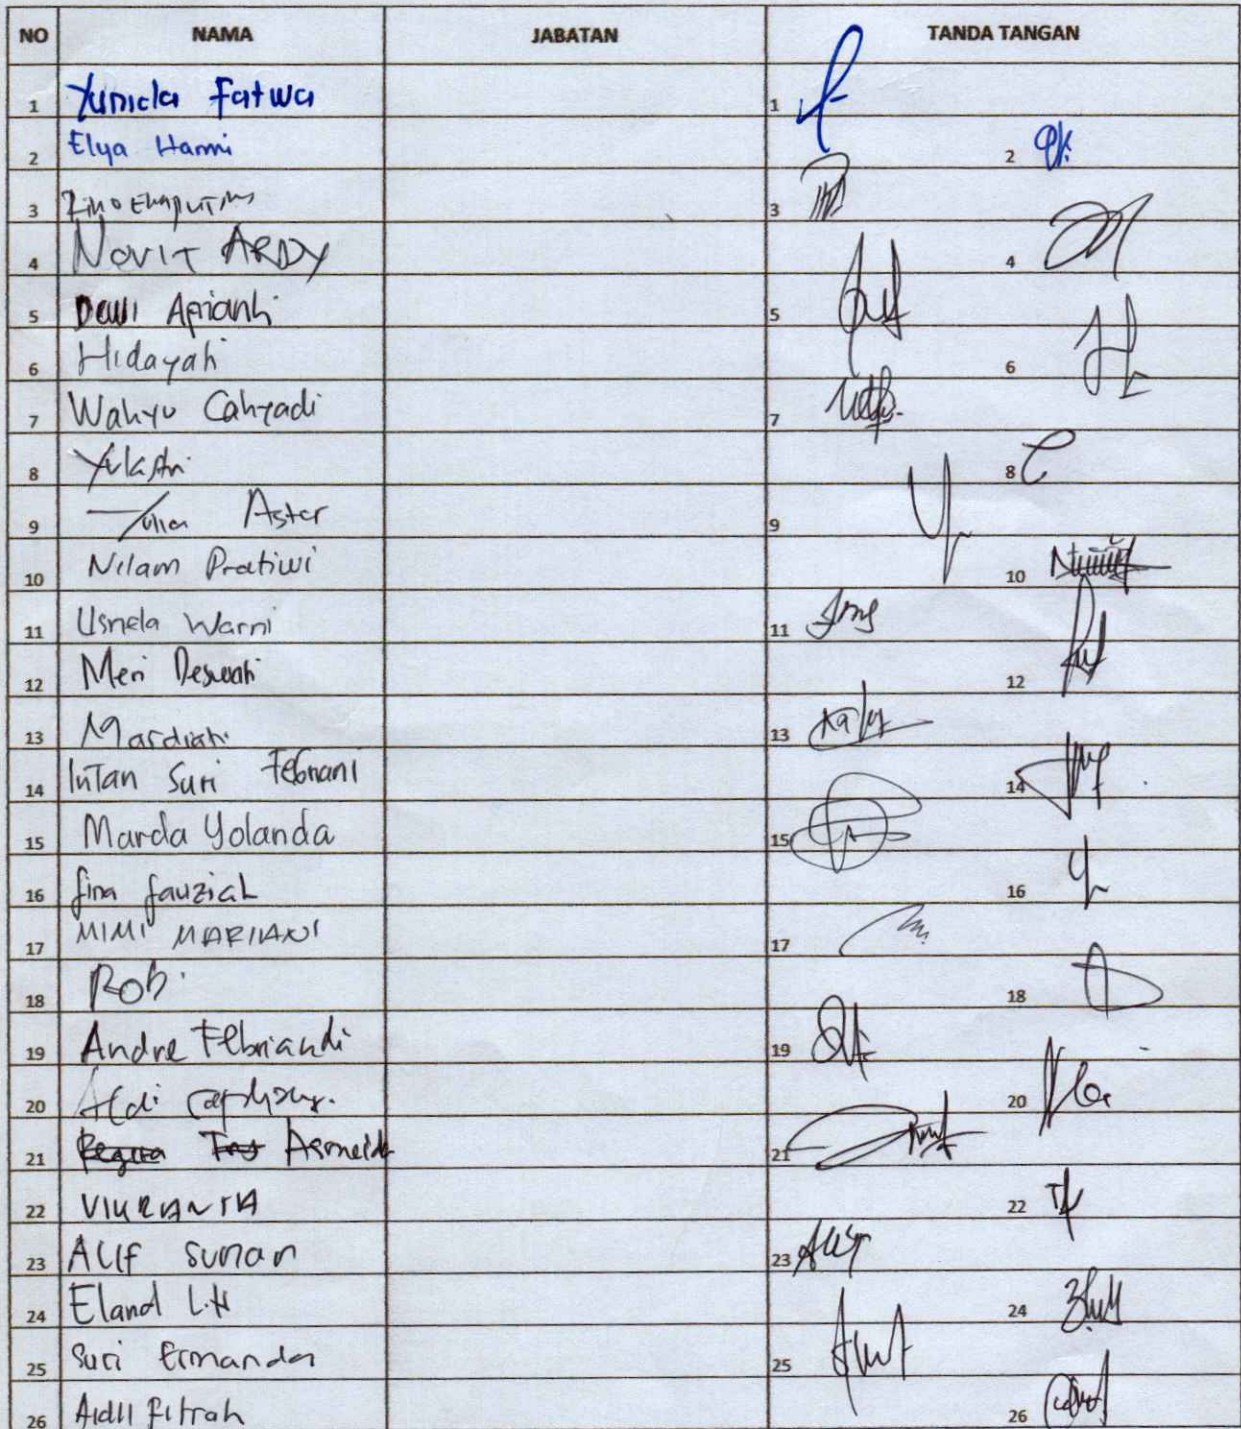 NO NAMA JABATAN TANDA TANGAN
1 Yunida Fatwa 1
2 Elya Harmi 2
3 3
4 NOVIT ARDY 4
5 Dewi Aprianti 5
6 Hidayah 6
7 Wahyu Cahyadi 7
8 Yulastri 8
9 Aster 9
10 Nilam Pratiwi 10
11 Usnela Warni 11
12 Meri Deswati 12
13 Mardiati 13
14 Intan Suri Febriani 14
15 Marda Yolanda 15
16 fina fauziah 16
17 MIMI MARIANI 17
18 Robi 18
19 Andre Febriandi 19
20 Aldi 20
21 Asmeida 21
22 22
23 Alif sunan 23
24 Eland L.H 24
25 Suci Ermanda 25
26 Aidil Fitrah 26